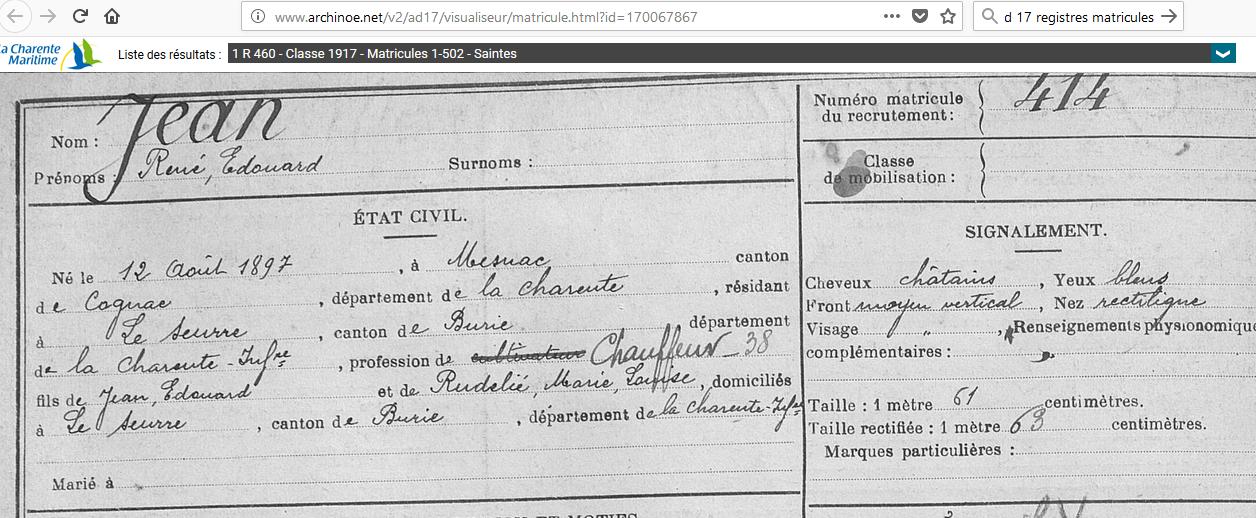 www.archinoe.net/v2/ad17/visualiseur/matricule.html?id=170067867
d 17 registres matricules
La Charente
Maritime
Liste des résultats : 1 R 460 - Classe 1917 - Matricules 1-502 - Saintes
Nom : Jean
Prénoms : René, Edouard Surnoms :
ÉTAT CIVIL.
Né le 12 Août 1897, à Mesnac canton
de Cognac, département de la Charente, résidant
à Le Seurre, canton de Burie département
de la Charente-Infre, profession de cultivateur Chauffeur_38
fils de Jean, Edouard et de Rudelié, Marie, Louise, domiciliés
à Le Seurre, canton de Burie, département de la Charente-Infre
Marié à
Numéro matricule
du recrutement : 414
Classe
de mobilisation :
SIGNALEMENT.
Cheveux châtains, Yeux bleus
Front moyen vertical, Nez rectiligne
Visage „ , Renseignements physionomique
complémentaires :
Taille : 1 mètre 61 centimètres.
Taille rectifiée : 1 mètre 63 centimètres.
Marques particulières :